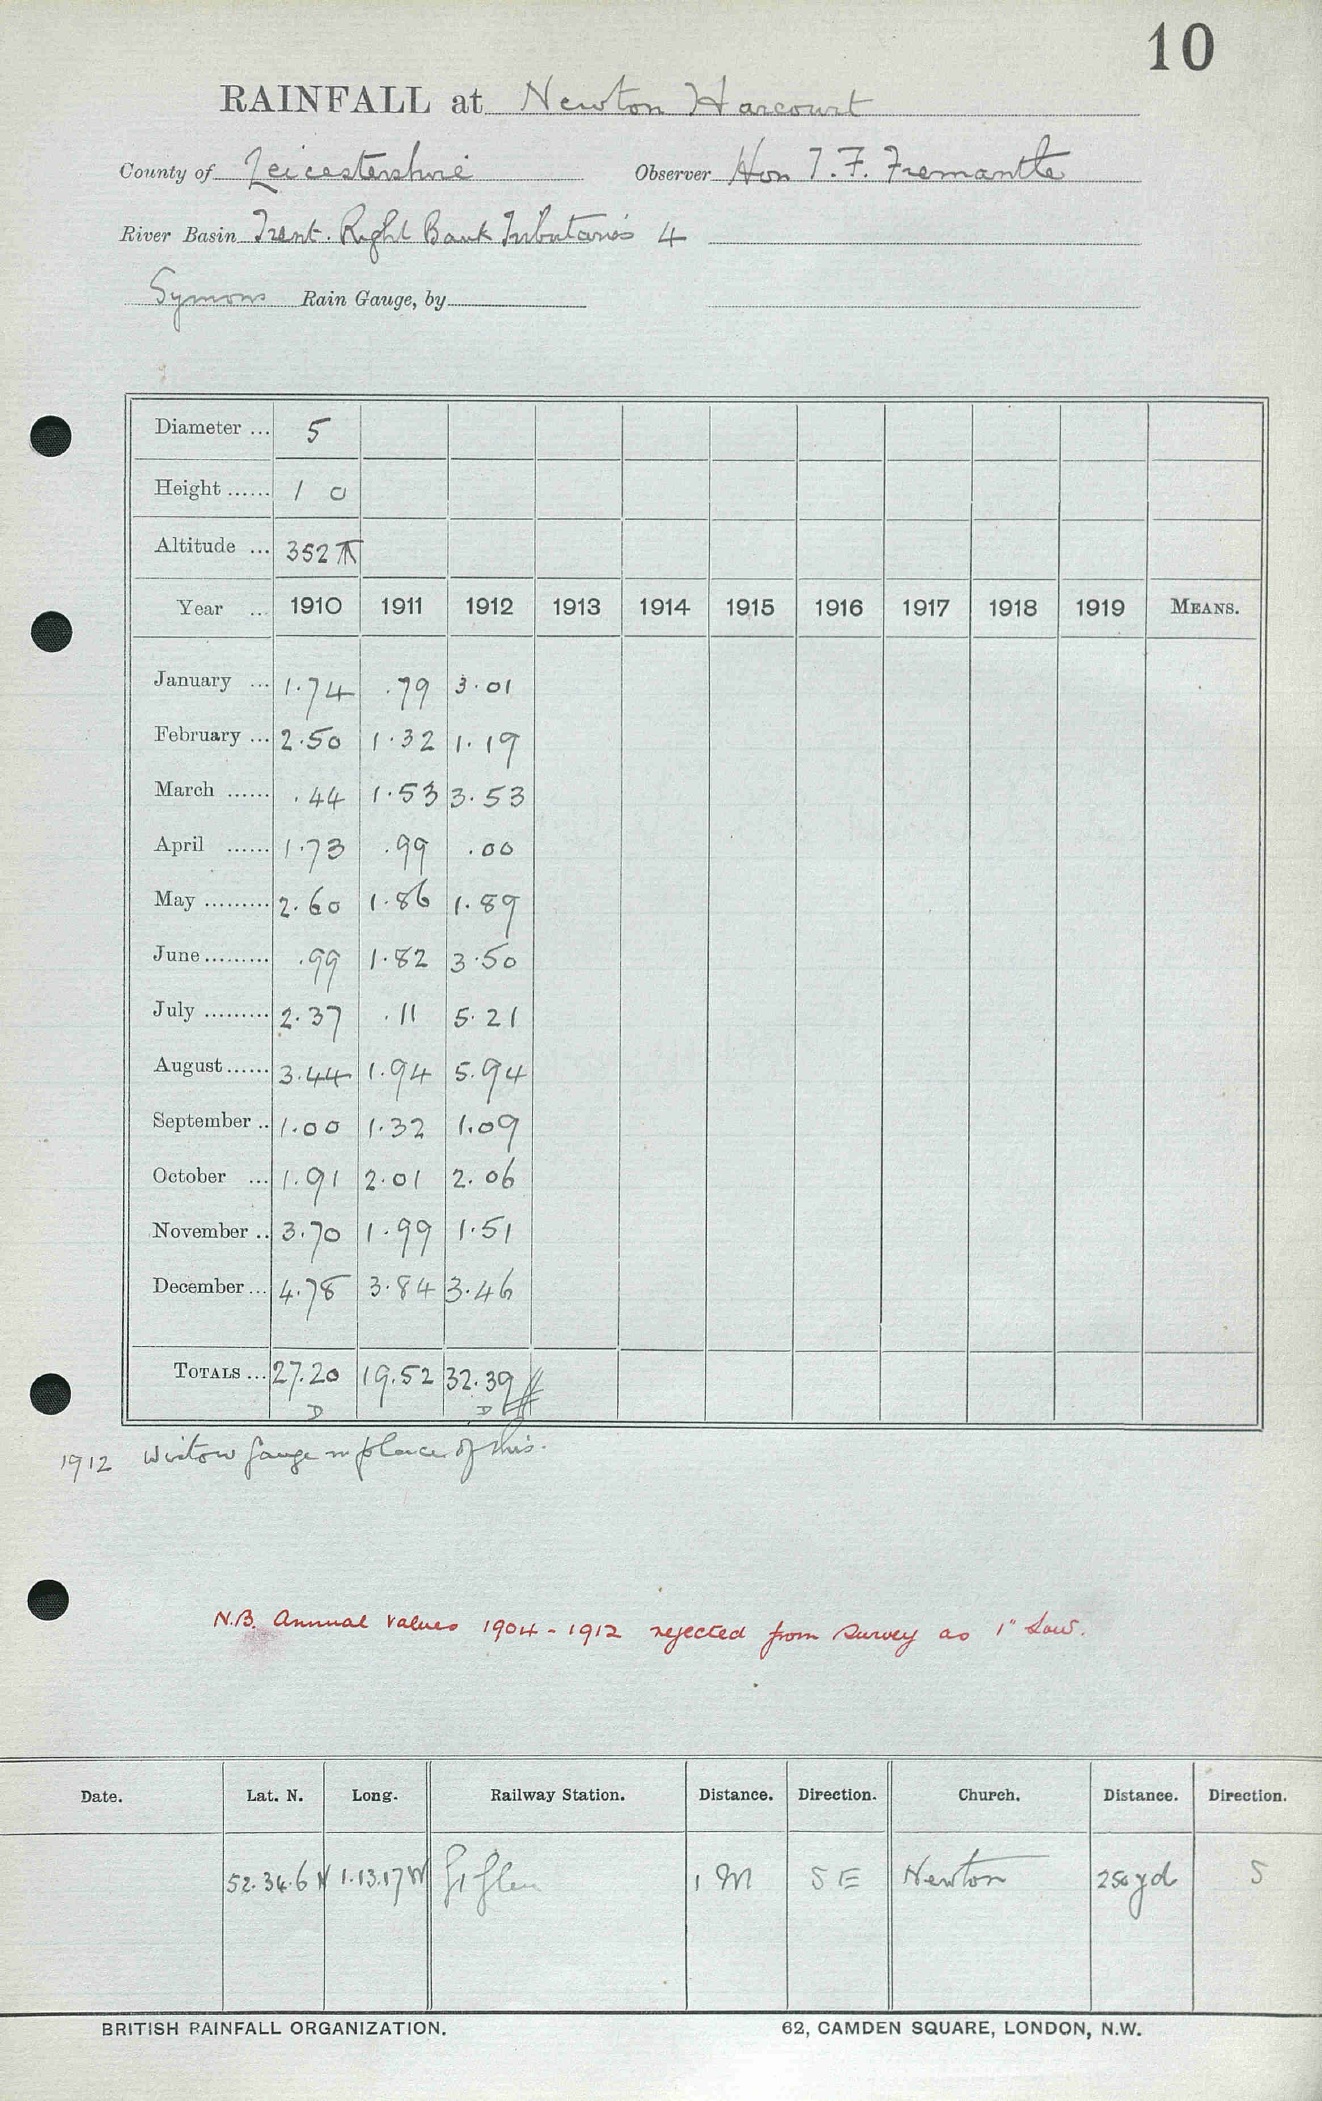 10
RAINFALL at Newton Harcourt
County of Leicestershire Observer Hon T. F. Fremantle
River Basin Trent. Right Bank Tributaries 4
Symons Rain Gauge, by
Diameter ... 5
Height ...... 1 0
Altitude ... 352
Year .. 1910 1911 1912 1913 1914 1915 1916 1917 1918 1919 MEANS.
January ... 1.74 .79 3.01
February ... 2.50 1.32 1.19
March ...... .44 1.53 3.53
April ...... 1.73 .99 .00
May ......... 2.60 1.86 1.89
June ......... .99 1.82 3.50
July ......... 2.37 .11 5.21
August ...... 3.44 1.94 5.94
September .. 1.00 1.32 1.09
October ... 1.91 2.01 2.06
November .. 3.70 1.99 1.51
December ... 4.78 3.84 3.46
TOTALS ... 27.20 19.52 32.39
D D
1912 Wistow gauge in place of this.
N.B. Annual values 1904-1912 rejected from survey as 1" low.
Date. Lat. N. Long. Railway Station. Distance. Direction. Church. Distance. Direction.
52.34.6 N 1.13.17 W Gt Glen 1 M S E Newton 250 yd S
BRITISH RAINFALL ORGANIZATION. 62, CAMDEN SQUARE, LONDON, N.W.